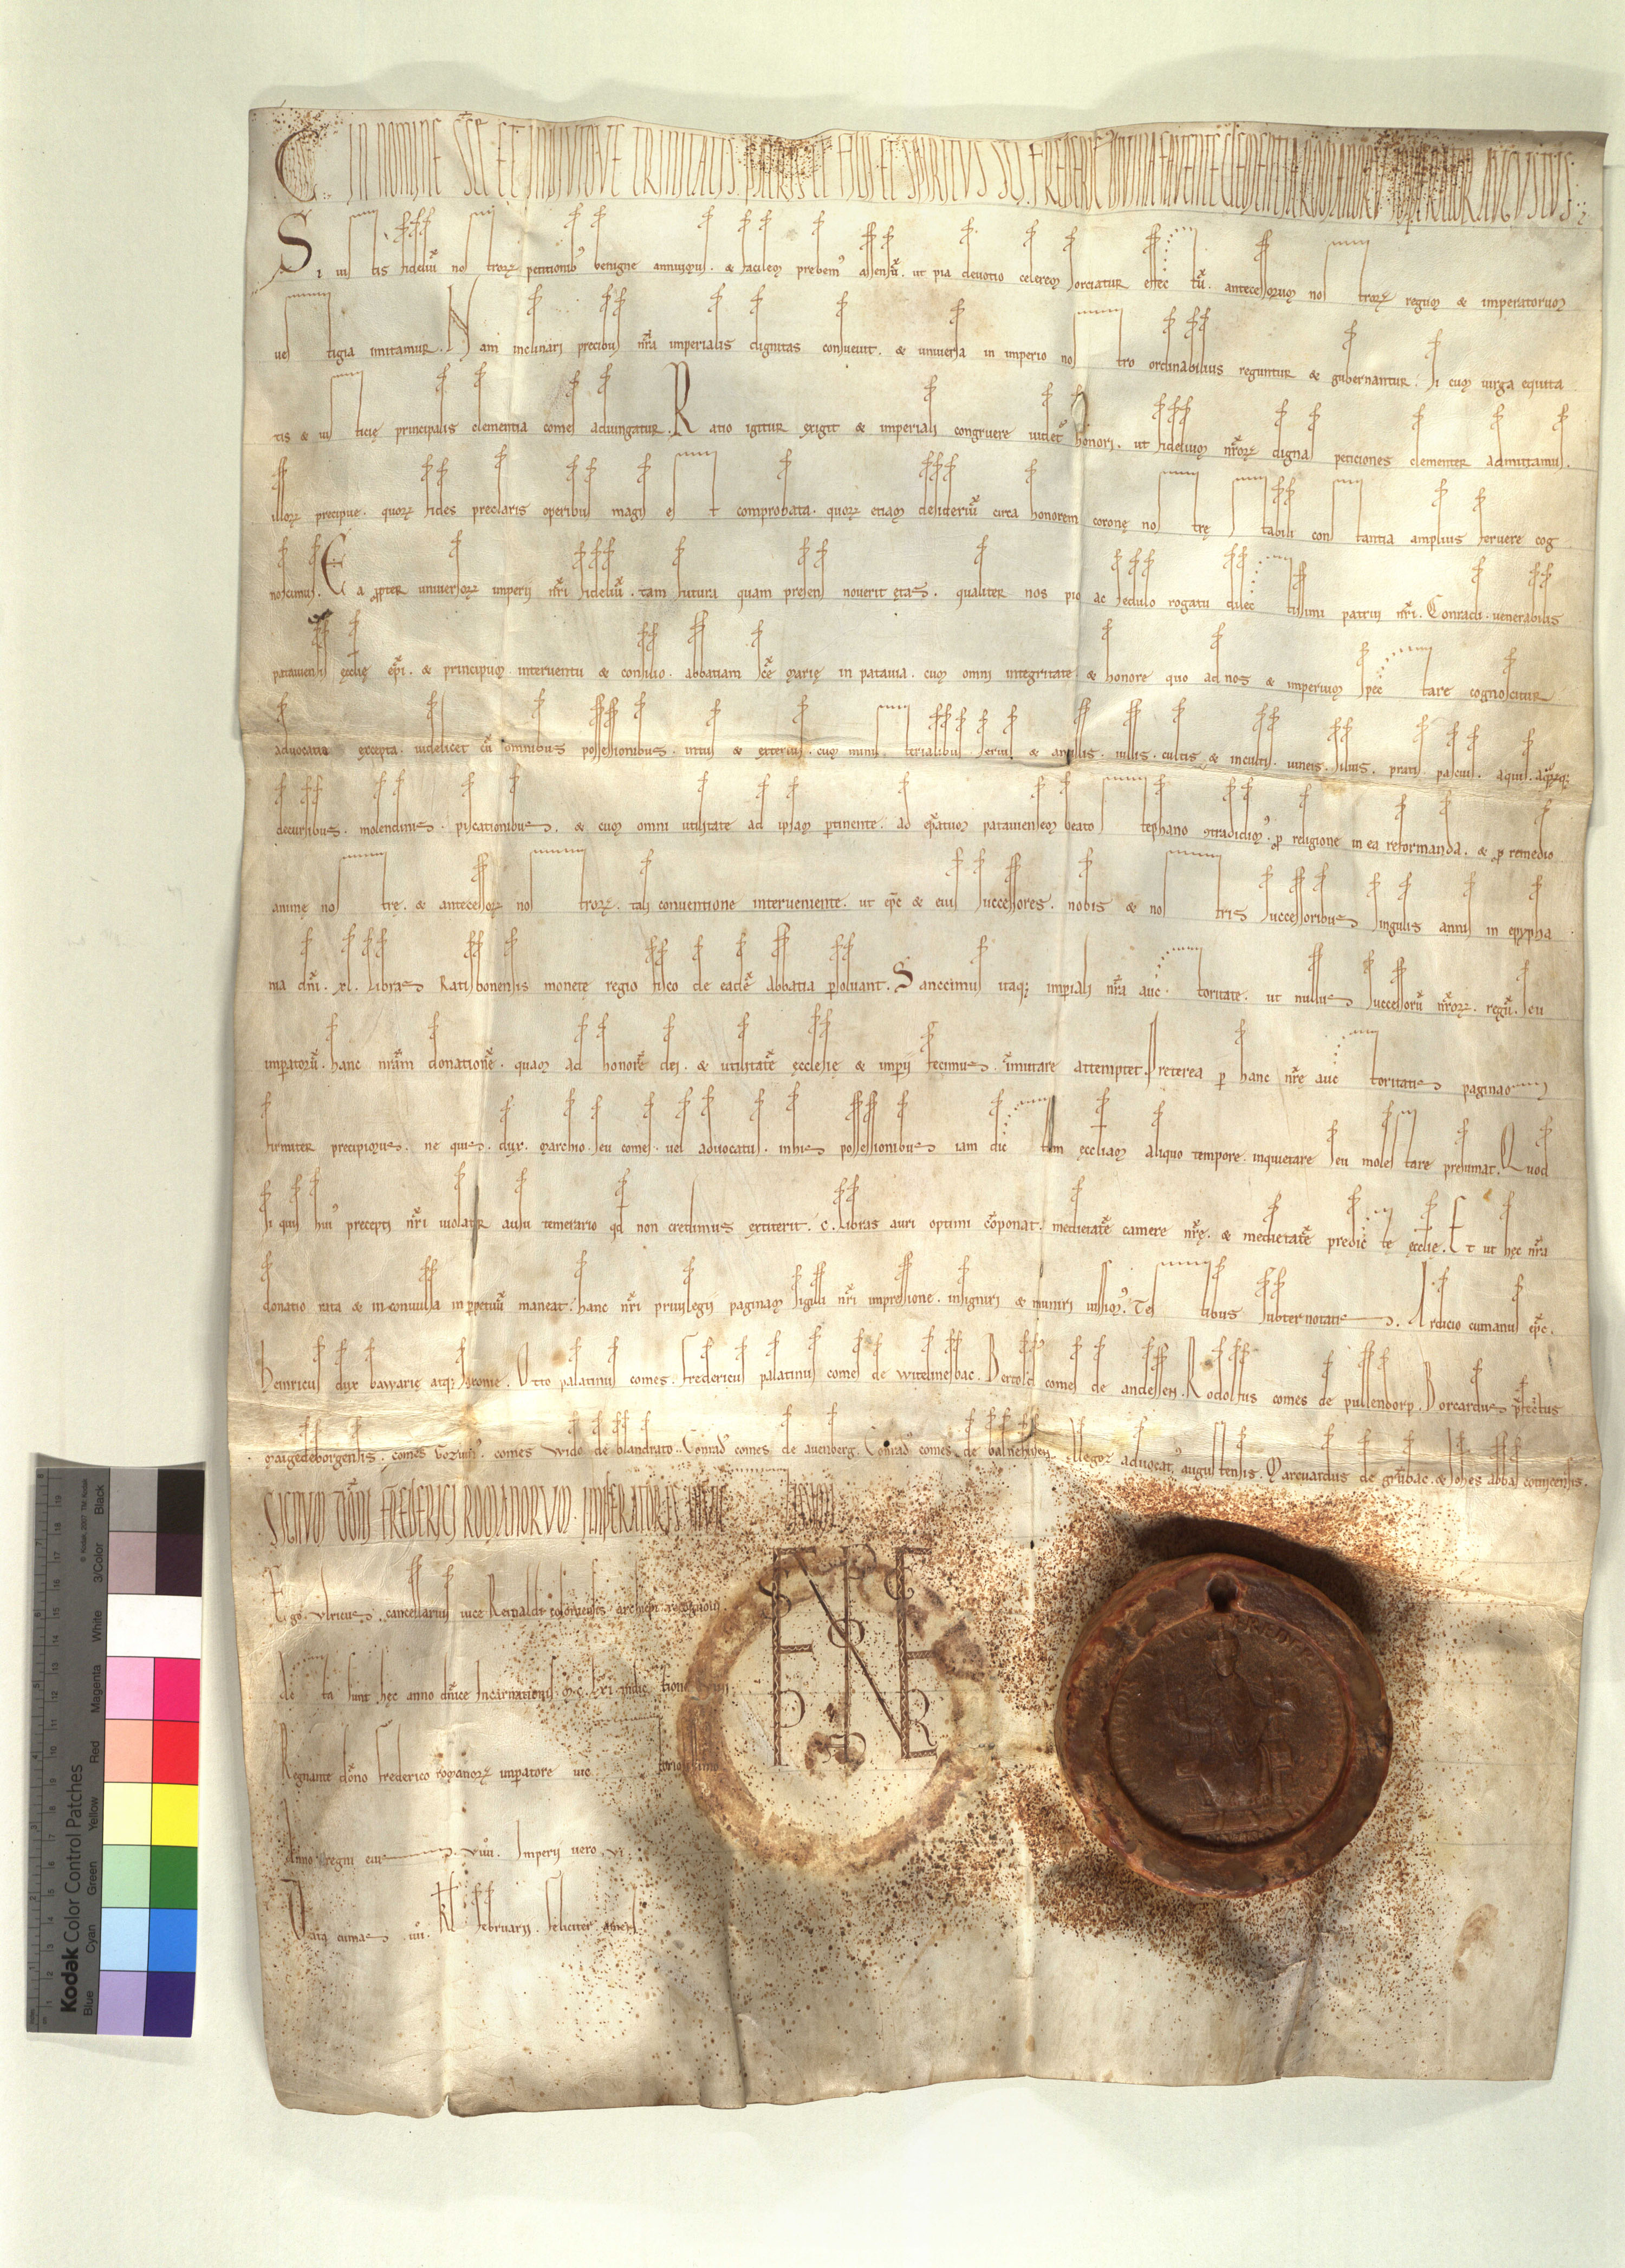 C. IN NOMINE SCĒ ET INDIVIDUE TRINITATIS. PATRIS ET FILII ET SPIRITVS SCI. FREDERIC DIVINA FAVENTE CLEMENTIA ROMANORV IMPERATOR AVGVSTVS:
Si iustis fideliū nostroꝝ petitionibꝰ benigne annuimus. & facilem prebemꝰ assensū. ut pia devotio celerem sorciatur effectū. antecessorum nostroꝝ regum & imperatorum
vestigia imitamur. Nam inclinari precibus nr̄a imperialis dignitas consuevit. & universa in imperio nostro ordinabilius reguntur & gubernantur. si cum virga equita
tis & iusticię principalis clementia comes adiungatur. Ratio igitur exigit & imperiali congruere videt᷑ honori. ut fidelium nr̄oꝝ dignas peticiones clementer admittamus.
illoꝝ precipue. quoꝝ fides preclaris operibus magis est comprobata. quoꝝ etiam desideriū circa honorem coronę nostrę stabili constantia amplius fervere cog
noscimus. Ea ꝓpter universoꝝ imperii nr̄i fideliū. tam futura quam presens noverit ętas. qualiter nos pio ac sedulo rogatu dilectissimi patrui nr̄i. Conradi. venerabilis
pataviensis ęcclię ep̄i. & principum interventu & consilio. abbatiam scē marię in patavia. cum omni integritate & honore quo ad nos & imperium spectare cognoscitur
advocatia excepta. videlicet cū omnibus possessionibus. intus & exterius. cum ministerialibus. servis & ancillis. villis. cultis & incultis. vineis. silvis. pratis. pascuis. aquis. aquarūq;
decursibus. molendinis. piscationibus. & cum omni utilitate ad ipsam ꝑtinente. ad ep̄atum pataviensem beato stephano ꝯtradidimꝰ. ꝓ religione in ea reformanda. & ꝓ remedio
animę nostrę. & antecessoꝝ nostroꝝ. tali conventione interveniente. ut ep̄c & eius successores. nobis & nostris successoribus singulis annis in epypha
nia dn̄i. xl. libras Ratisbonensis monetę regio fisco de eadē abbatia ꝑsolvant. Sanccimus itaq; imꝑiali nr̄a auctoritate. ut nullus successorū nr̄oꝝ. regū. seu
imꝑatorū. hanc nr̄am donationē. quam ad honorē dei. & utilitatē ęcclesię & imꝑii fecimus. īmutare attemptet. Preterea ꝑ hanc nr̄ę auctoritatis paginam
firmiter precipimus. ne quis. dux. marchio. seu comes. vel advocatus. in his possessionibus iam dictam ęccliam aliquo tempore. inquietare seu molestare presumat. Quod
si quis huiꝰ precepti nr̄i violator ausu temerario qd̄ non credimus extiterit. c. libras auri optimi cōponat. medietatē camere nr̄ę. & medietatē predictę ęcclię. Et ut hęc nr̄a
donatio rata & inconvulsa in ꝑpetuū maneat. hanc nr̄i privilegii paginam sigilli nr̄i impressione. insigniri & muniri iussimꝰ. Testibus subternotatis. Ardicio cumanus ep̄c.
Heinricus dux bawarię atq; saxonie. Otto palatinus comes. Fredericus palatinus comes de witelinesbac. Bertold comes de andessen. Rodolfus comes de pullendorp. Borcardus p̄fectus
maigedeborgensis. comes wido de blandrato. Conradꝰ comes de avenberg. Conradꝰ comes de balnehusen. advocatꝰ augustensis. Marcuardus de grūbac. & Johes abbas
SIGNVM DŌNI FREDERICI ROMANORVM IMPERATORIS INVICTISSIMI
Ego Vlricus cancellarius vice Reinaldi coloniensis archiepi recognovi.
Acta sunt hęc anno dn̄ice Incarnationis. m. c. lxi. indictione viiii
Regnante dōno Frederico romanoꝝ imꝑatore victoriosissimo
Anno regni eius. viiii. Imperii vero. vi.
Datum cumas. iiii. kl Februarii. Feliciter amen.